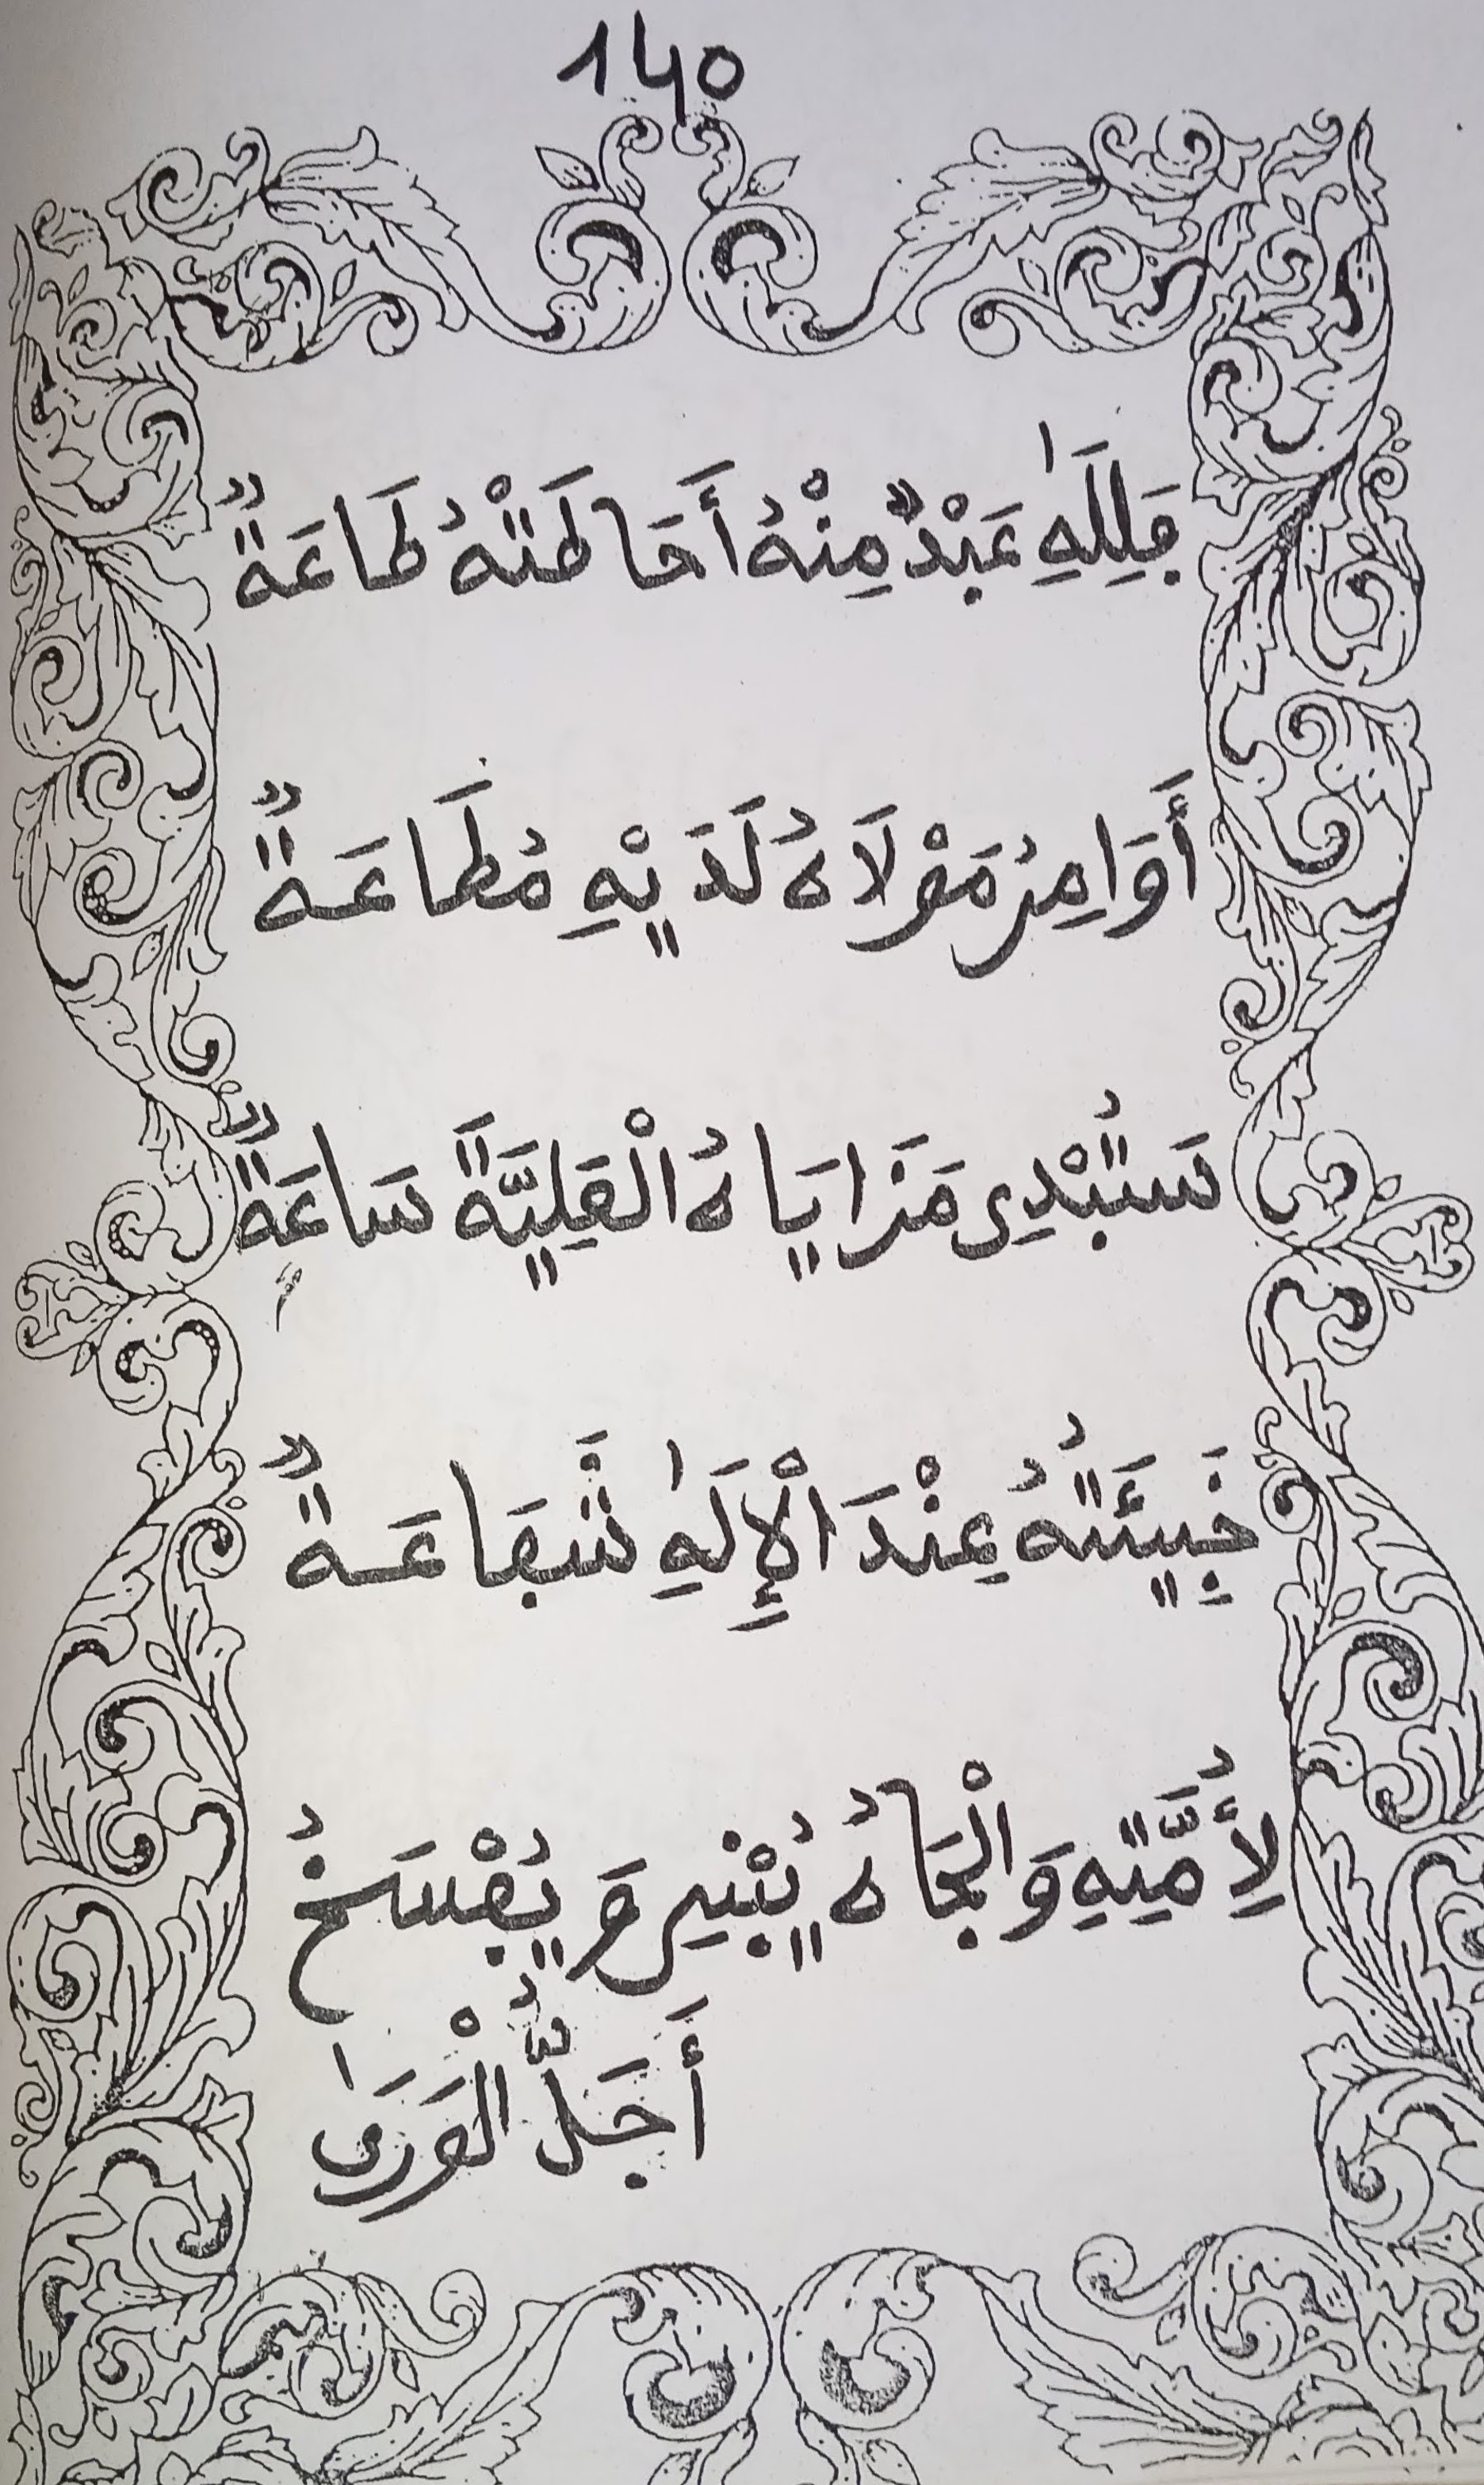 140
فَلِلَّهِ عَبْدٌ مِنْهُ أَحَاطَتْهُ طَاعَةٌ
أَوَامِرُ مَوْلَاهُ لَدَيْهِ مُطَاعَةٌ
سَتُبْدِي مَزَايَاهُ الْعَلِيَّةَ سَاعَةٌ
خَبِيئَتُهُ عِنْدَ الْإِلَهِ شَفَاعَةٌ
لِأُمَّتِهِ وَالْجَاهُ يُنْبِي وَيُفْسَخُ
أَجَلُّ الْوَرَى